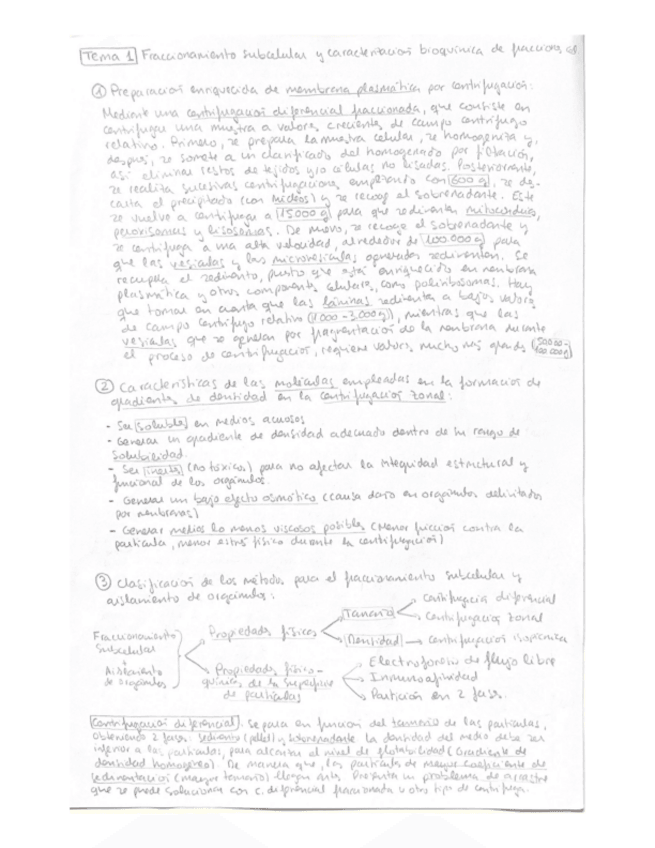 Tema 1 Fraccionamiento subcelular y caracterización bioquímica de fracciones
① Preparación enriquecida de membrana plasmática por centrifugación:
Mediante una centrifugación diferencial fraccionada, que consiste en
centrifugar una muestra a valores crecientes de campo centrífugo
relativo. Primero, se prepara la muestra celular, se homogeniza y,
después, se somete a un clarificado del homogenado por filtración,
así eliminar restos de tejidos y/o células no lisadas. Posteriormente,
se realiza sucesivas centrifugaciones empezando con 600 g, se des-
carta el precipitado (con núcleos) y se recoge el sobrenadante. Este
se vuelve a centrifugar a 15000 g para que sedimenten mitocondrias,
peroxisomas y lisosomas. De nuevo, se recoge el sobrenadante y
se centrifuga a una alta velocidad, alrededor de 100.000 g para
que las vesículas y las microvesículas sedimenten. Se
recupera el sedimento, puesto que está enriquecido en membrana
plasmática y otros componentes celulares, como polirribosomas. Hay
que tomar en cuenta que las láminas sedimentan a bajos valores
de campo centrífugo relativo (1000-3000g), mientras que las
vesículas que se generan por fragmentación de la membrana durante
el proceso de centrifugación, requiere valores mucho más grandes (50000-
100.000g)
② Características de las moléculas empleadas en la formación de
gradientes de densidad en la centrifugación zonal:
- Ser soluble en medios acuosos
- Generar un gradiente de densidad adecuado dentro de su rango de
solubilidad.
- Ser inerte (no tóxico) para no afectar la integridad estructural y
funcional de los orgánulos.
- Generar un bajo efecto osmótico (causa daño en orgánulos delimitados
por membranas)
- Generar medios lo menos viscosos posibles (Menor fricción contra la
partícula, menor estrés físico durante la centrifugación)
③ Clasificación de los métodos para el fraccionamiento subcelular y
aislamiento de orgánulos:
Fraccionamiento
subcelular
Aislamiento
de orgánulos
Propiedades físicas
Tamaño
centrifugación diferencial
centrifugación zonal
Densidad
centrifugación isopícnica
Propiedades físico-
químicas de la superficie
de partículas
Electroforesis de flujo libre
Inmunoafinidad
Partición en 2 fases.
Centrifugación diferencial. Separa en función del tamaño de las partículas,
obteniendo 2 fases: sedimento (pellet) y sobrenadante. La densidad del medio debe ser
inferior a las partículas, para alcanzar el nivel de flotabilidad (Gradiente de
densidad homogéneo). De manera que, las partículas de mayor coeficiente de
sedimentación (mayor tamaño) llegan antes. Presenta un problema de arrastre
que se puede solucionar con c. diferencial fraccionada u otro tipo de centrifuga.